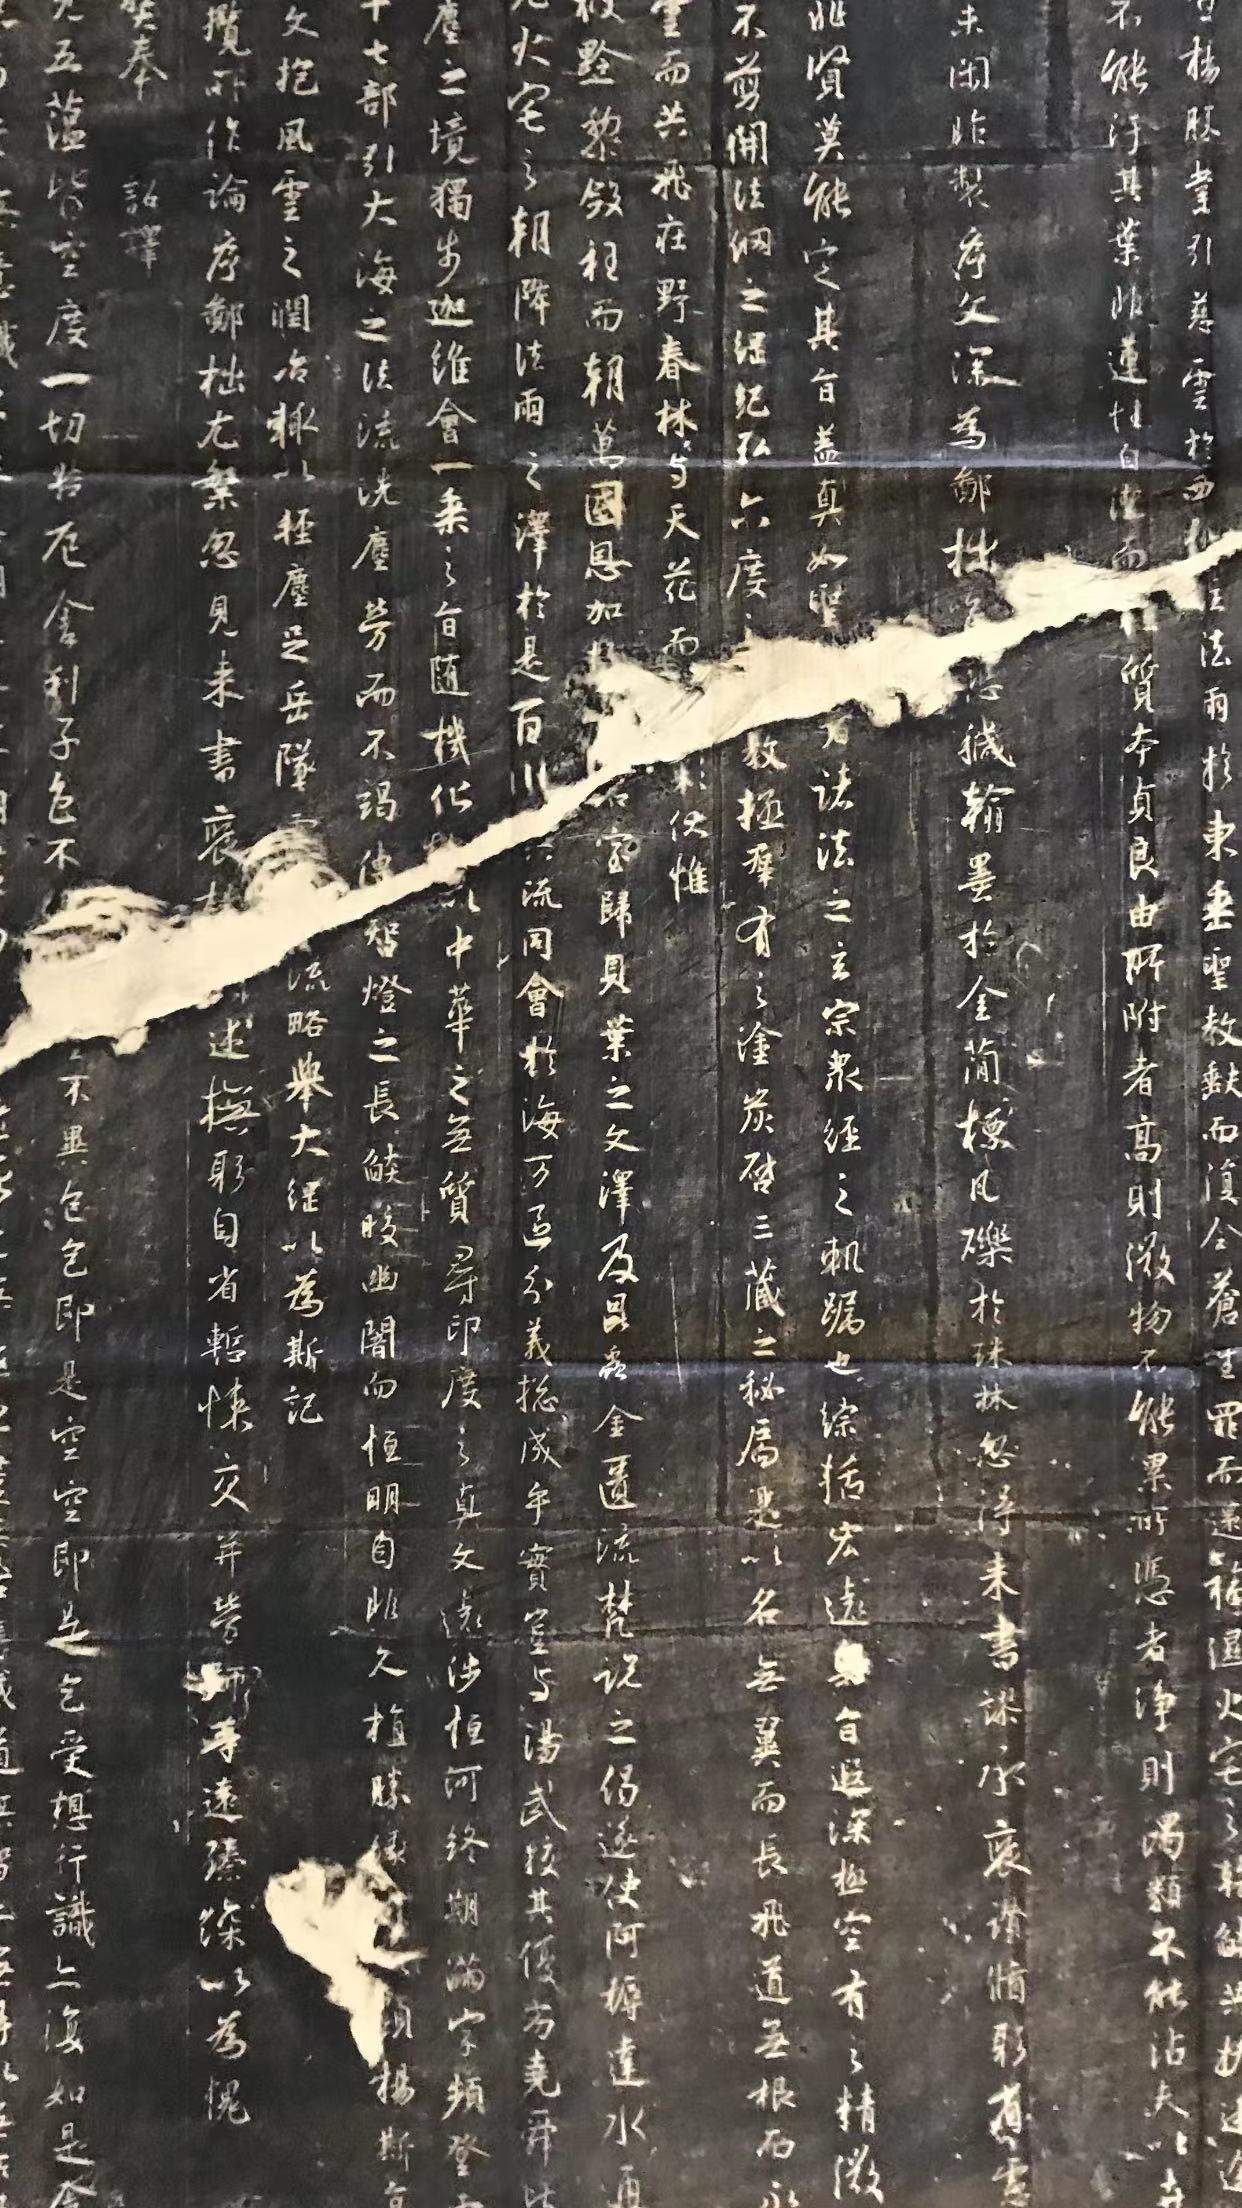 揚勝業引慈雲於西極注法雨於東垂聖教缺而復全蒼生罪而還福濕火宅之乾焰共拔迷途
不能汙其葉非蓮性自潔而桂質本貞良由所附者高則微物不能累所憑者淨則濁類不能沾夫以卉
未閑昨製序文深為鄙拙唯恐穢翰墨於金簡標瓦礫於珠林忽得來書謬承褒讚循躬省慮
非賢莫能定其旨蓋真如聖者諸法之玄宗衆經之軌躅也綜括宏遠奧旨遐深極空有之精微
不剪開法網之綱紀弘六度教拯羣有之塗炭啓三藏之秘扃是以名無翼而長飛道無根而永
雲而共飛莊野春林與天花而彩伏惟
被黔黎斂衽而朝萬國恩加石室歸貝葉之文澤及昆蟲金匱流梵說之偈遂使阿耨達水通
火宅之朝降法雨之澤於是百川異流同會於海萬區分義總成乎實豈與湯武校其優劣堯舜比
塵之境獨步迦維會一乘之旨隨機化物以中華之無質尋印度之真文遠涉恒河終期滿字頻登雪
十七部引大海之法流洗塵勞而不竭傳智燈之長焰皎幽闇而恒明自非久植勝緣顯揚斯旨
文抱風雲之潤治輒以輕塵足岳墜流略舉大綱以為斯記
覽所作論序鄙拙尤繁忽見來書褒述撫躬自省慙悚交并勞師等遠臻深以為愧
奘奉 詔譯
五蘊皆空度一切苦厄舍利子色不不異色色即是空空即是色受想行識亦復如是舍